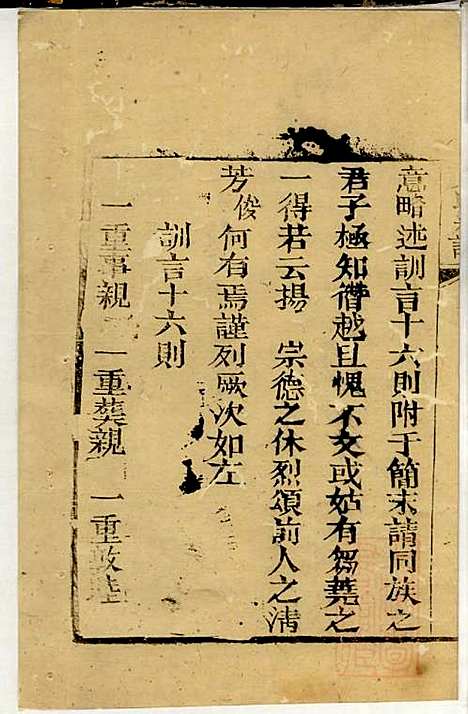 意略述訓言十六則附于簡末請同族之
君子極知僭越且愧不文或姑有芻蕘之
一得若云揚 崇德之休烈頌前人之清
芳俊何有焉謹列厥次如左
訓言十六則
一重事親 一重葬親 一重敦睦